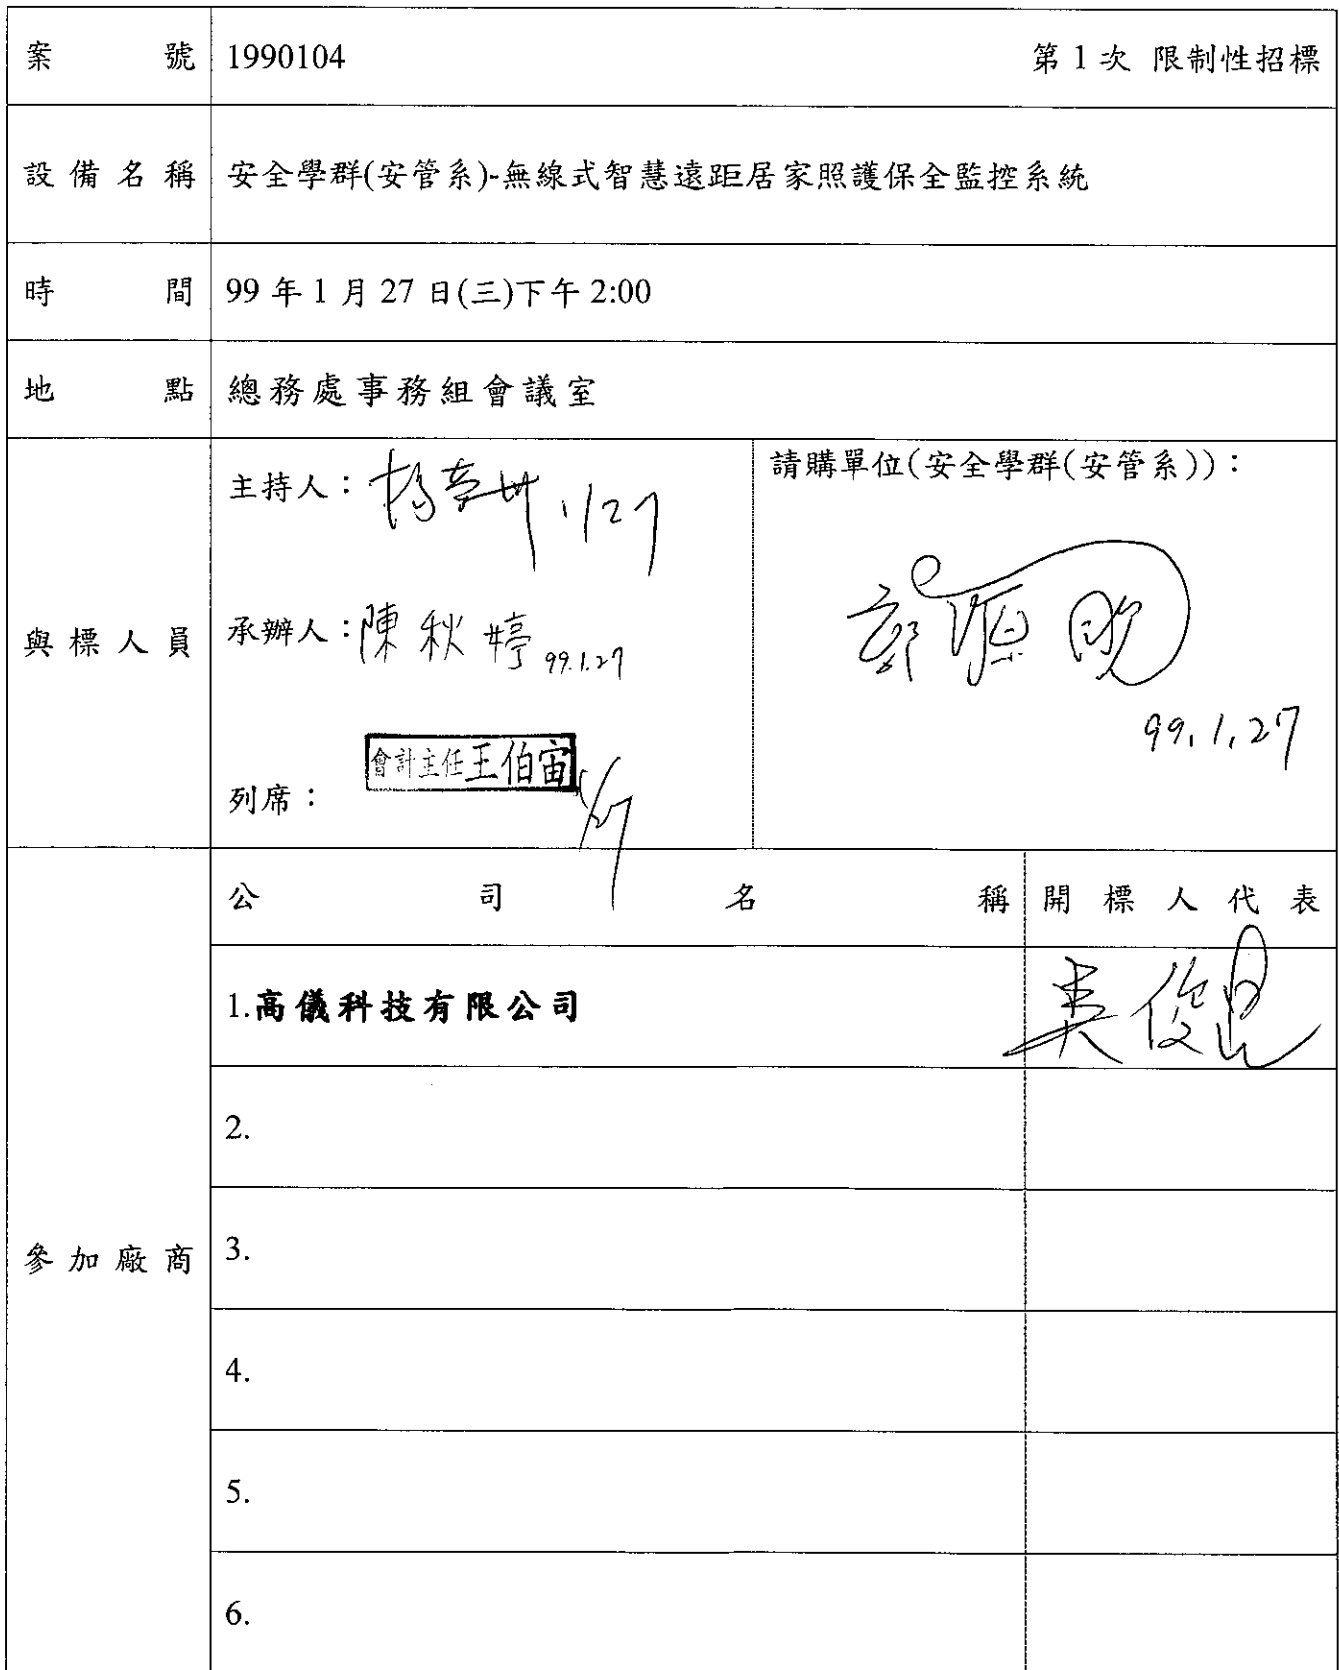 案號 1990104 第1次 限制性招標
設備名稱 安全學群(安管系)-無線式智慧遠距居家照護保全監控系統
時間 99年1月27日(三)下午2:00
地點 總務處事務組會議室
與標人員
主持人： 1/27
承辦人：陳秋婷 99.1.27
列席： 會計主任王伯宙 1/27
請購單位(安全學群(安管系))：
99.1.27
參加廠商
公司名稱 開標人代表
1.高儀科技有限公司 吳俊昆
2.
3.
4.
5.
6.